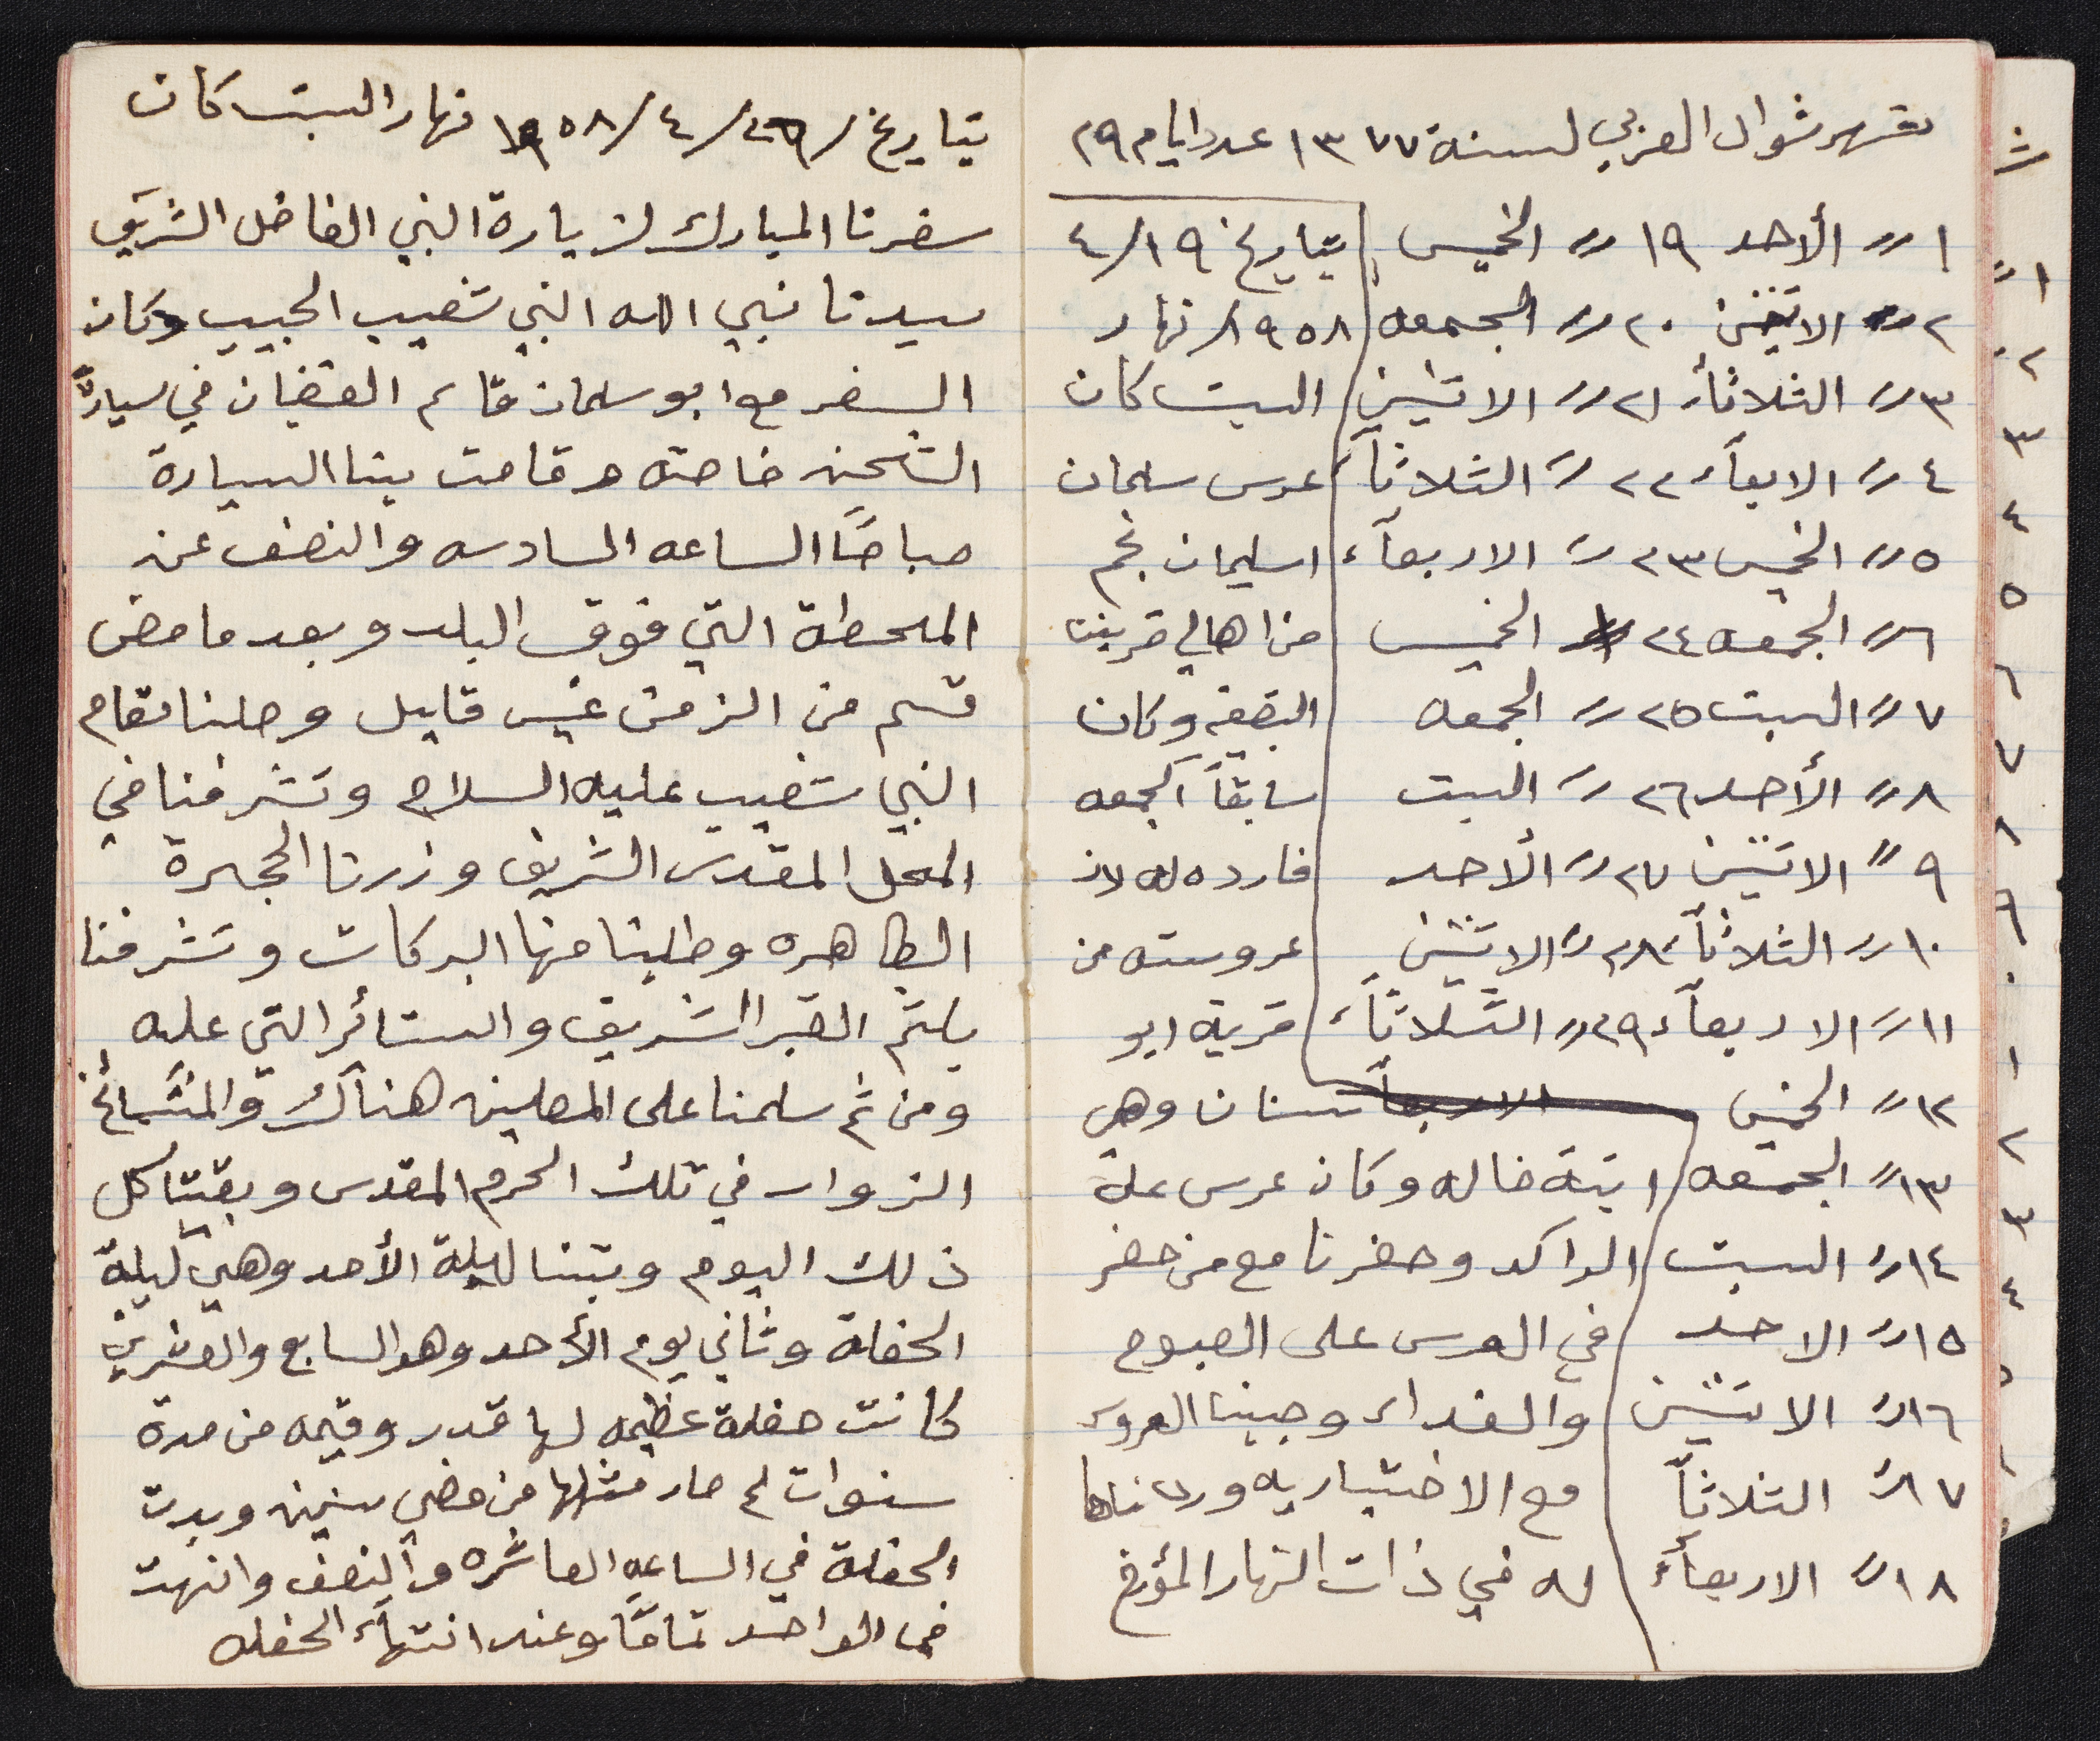 شهر شوال العربي لسنة ١٣٧٧ عدد ايام ٢٩
١〃 الأحد ١٩〃 الخميس بتاريخ ١٩/٤
٢〃 الاثنين ٢٠〃 الجمعه ١٩٥٨/ نهار
٣〃 الثلاثاء ٢١〃 الاثنين السبت كان
٤〃 الاربعاء ٢٢〃 الثلاثاء عرس سلمان
٥〃 الخميس ٢٣〃 الاربعاء اسليمان نجم
٦〃 الجمعه ٢٤〃 الخميس من اهالي قريتنا
٧〃 السبت ٢٥〃 الجمعه البقيعه وكان
٨〃 الأحد ٢٦〃 السبت سابقاً الجمعه
٩〃 الاثنين ٢٧〃 الأحد فارده له لان
١٠〃 الثلاثاء ٢٨〃 الاثنين عروسته من
١١〃 الاربعاء ٢٩〃 الثلاثاء قرية ابو
١٢〃 الخميس الاربعاء سنان وهي
١٣〃 الجمعه ابنة خاله وكان عرس عله
١٤〃 السبت الراكد وحضرنا مع من حضر
١٥〃 الاحد في العرس على الصبوح
١٦〃 الاثنين والغداء وجبنا العروس
١٧〃 الثلاثاء مع الاختياريه
١٨〃 الاربعاء له في ذات النهار المؤرخ
بتاريخ /٢٦/٤/١٩٥٨ نهار السبت كان
سفرنا المبارك لزيارة النبي الفاضل الشريف
سيدنا نبي الله النبي شعيب الحبيب وكان
السفر مع ابو سلمان قاسم الغضبان في سيارة
الشحن خاصته وقامت بنا السيارة
صباحًا الساعه السادسه والنصف عن
المحطة التي فوق البلد وبعد ما مضى
قسم من الزمن غير قليل وصلنا مقام
النبي شعيب عليه السلام وتشرفنا في
المحل المقدس الشريف وزرنا الحجرة
الطاهره وطلبنا منها البركات وتشرفنا
بلثم القبر الشريف والستائر التي عليه
ومن ثم سلمنا على المصلين هناك والمشائخ
الزوار في تلك الحرم المقدس وبقينا كل
ذلك اليوم وبتنا لليلة الأحد وهي ليلة
الحفلة وثاني يوم الأحد وهو السابع والعشرين
كانت حفلة عظيمه لها قدر وقيمه من مدة
سنوات لم صار مثلها من مضي سنين وبدت
الحفلة في الساعه العاشره والنصف وانهت
في الواحد تمامًا وعند انتهاء الحفله
ش
١〃
٢
٣
٤
٥
٦
٧
٨
٩
٠
١
٢
٣
٤